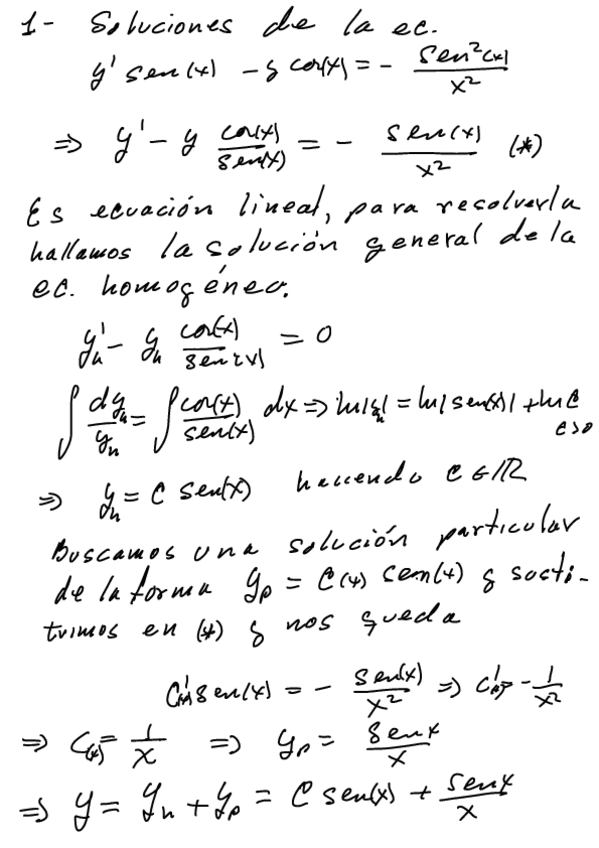 1- Soluciones de la ec.
y' sen(x) - y cos(x) = - sen²(x)/x²
⇒ y' - y cos(x)/sen(x) = - sen(x)/x² (*)
Es ecuación lineal, para resolverla
hallamos la solución general de la
ec. homogénea.
y'ₕ - yₕ cos(x)/sen(x) = 0
∫ dyₕ/yₕ = ∫ cos(x)/sen(x) dx ⇒ ln|yₕ| = ln|sen(x)| + ln C
C>0
⇒ yₕ = C sen(x) haciendo C ∈ ℝ
Buscamos una solución particular
de la forma yₚ = C(x) sen(x) y susti-
tuimos en (*) y nos queda
C'(x) sen(x) = - sen(x)/x² ⇒ C'(x) = - 1/x²
⇒ C(x) = 1/x ⇒ yₚ = sen x/x
⇒ y = yₕ + yₚ = C sen(x) + sen x/x